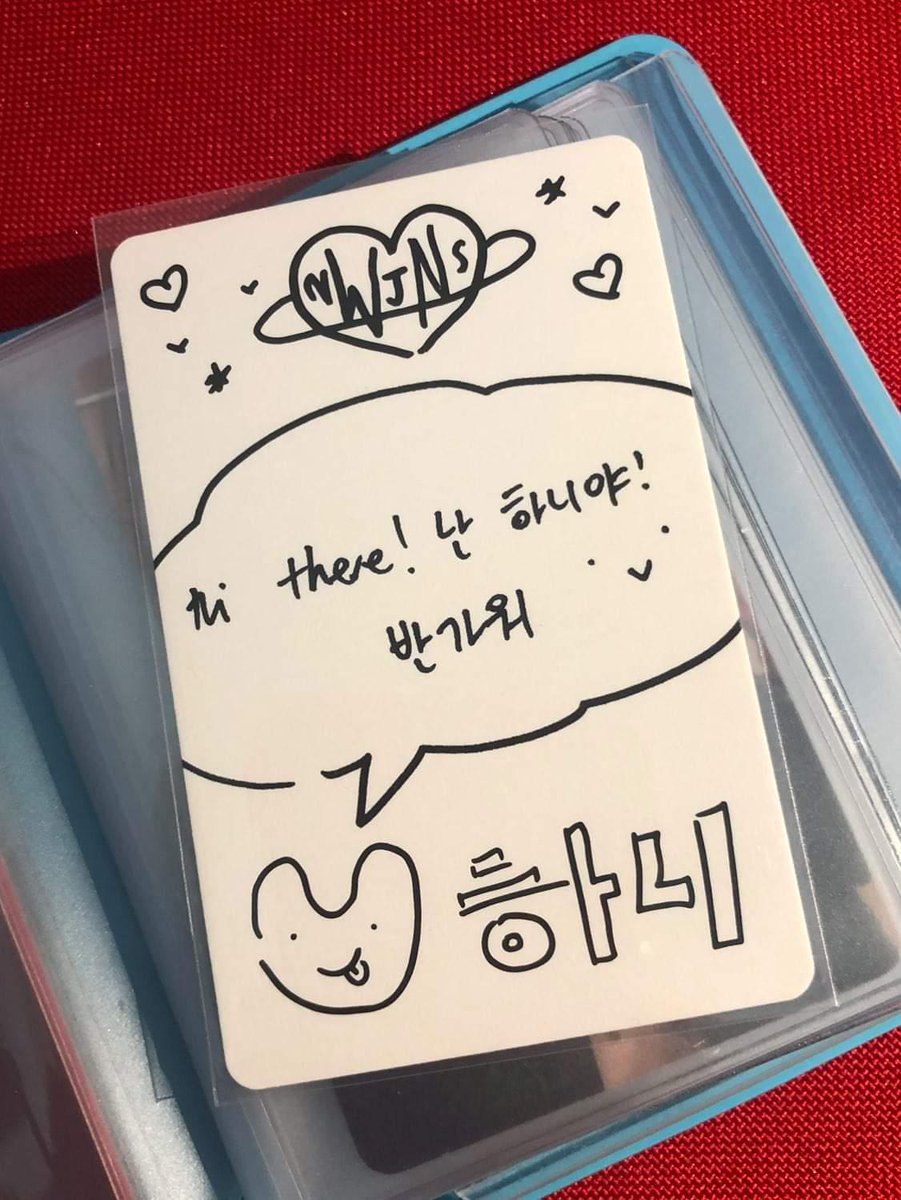 NWJNS
hi there! 난 하니야!
반가워
하니